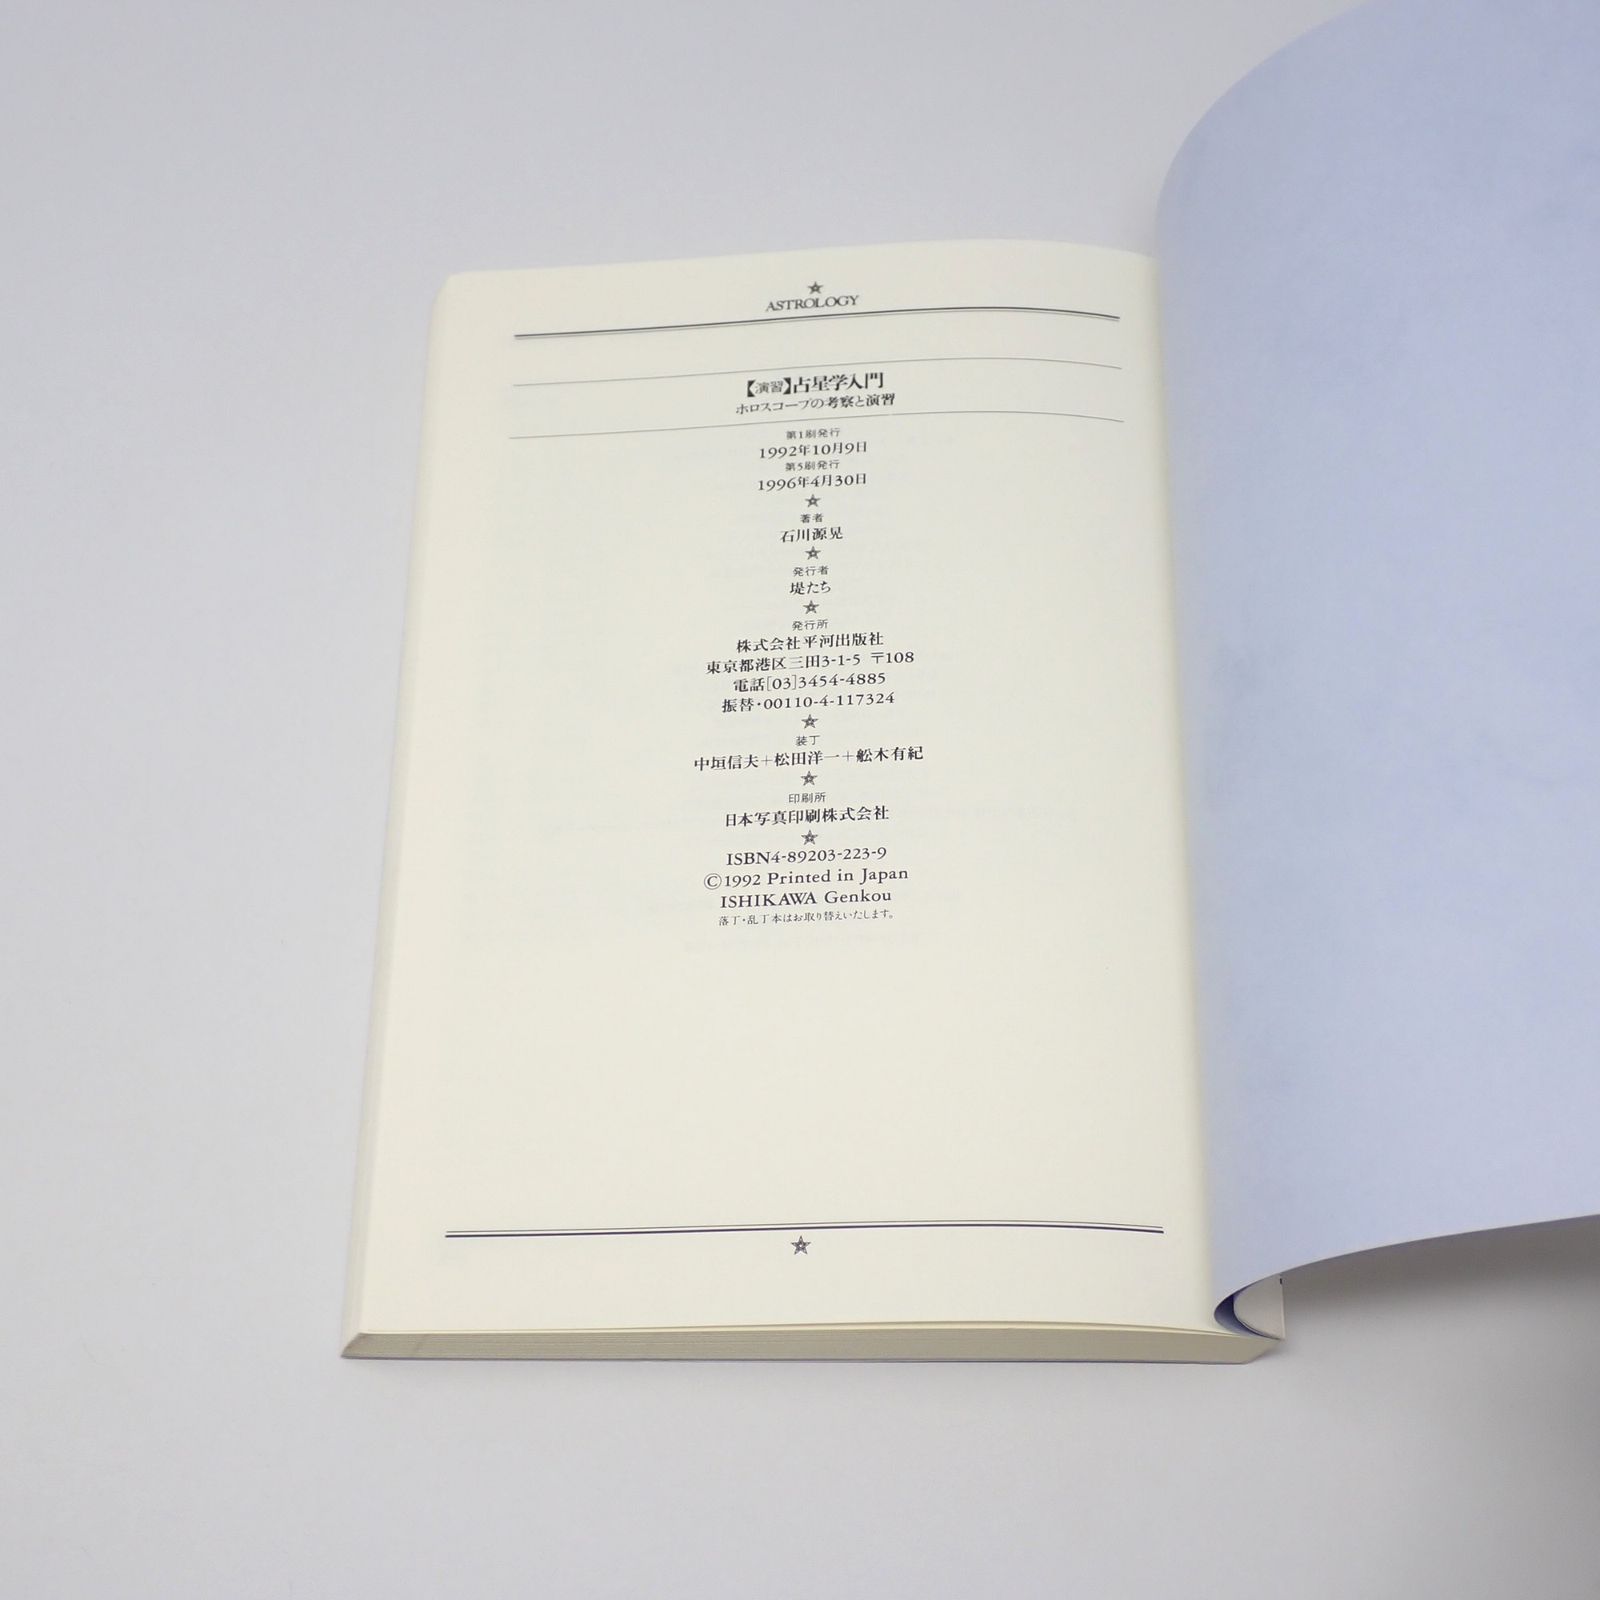 ASTROLOGY
【演習】占星学入門
ホロスコープの考察と演習
第1刷発行
1992年10月9日
第5刷発行
1996年4月30日
著者
石川源晃
発行者
堤たち
発行所
株式会社平河出版社
東京都港区三田3-1-5 〒108
電話[03]3454-4885
振替・00110-4-117324
装丁
中垣信夫+松田洋一+舩木有紀
印刷所
日本写真印刷株式会社
ISBN4-89203-223-9
©1992 Printed in Japan
ISHIKAWA Genkou
落丁・乱丁本はお取り替えいたします。